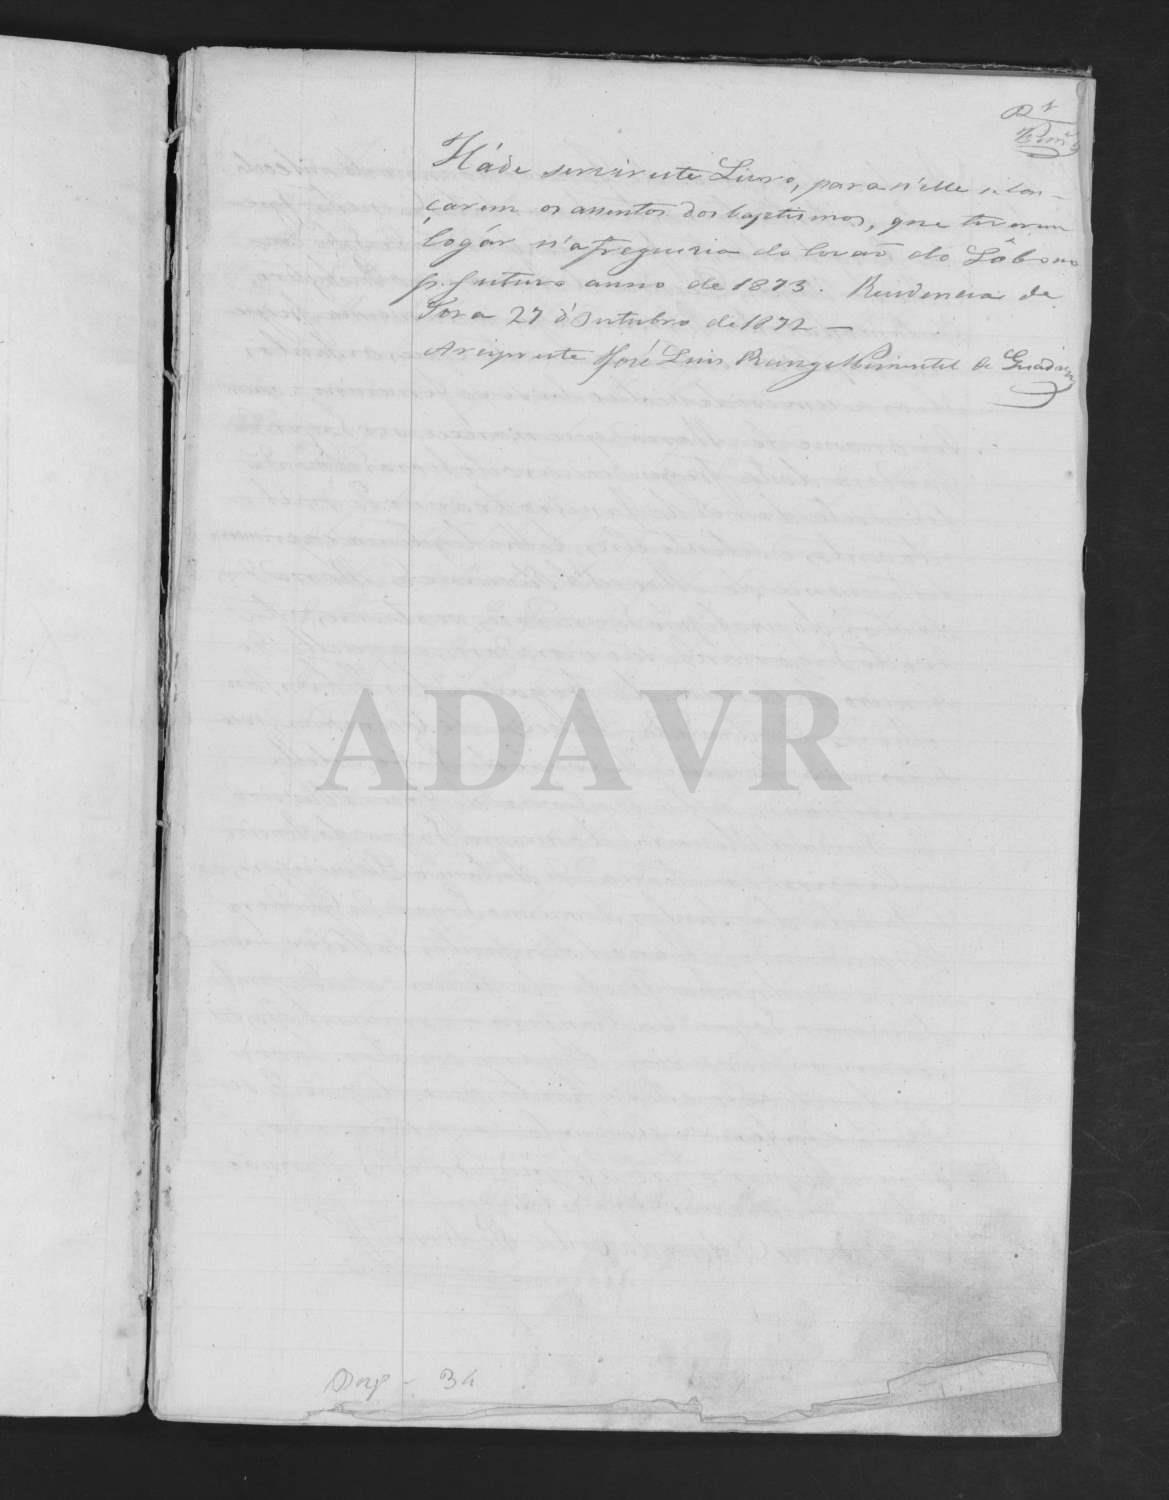 1
Pimel
Háde servir este Livro, para n'elle se lan-
çarem os assentos dos baptismos, que tiverem
logár n'a freguesia do Covaõ do Lôbo no
p. futuro anno de 1873. Residencia de
Sora 27 d'Outubro de 1872 —
Arcipreste José Luis Rangel Pimentel de
ADAVR
Bap - 34